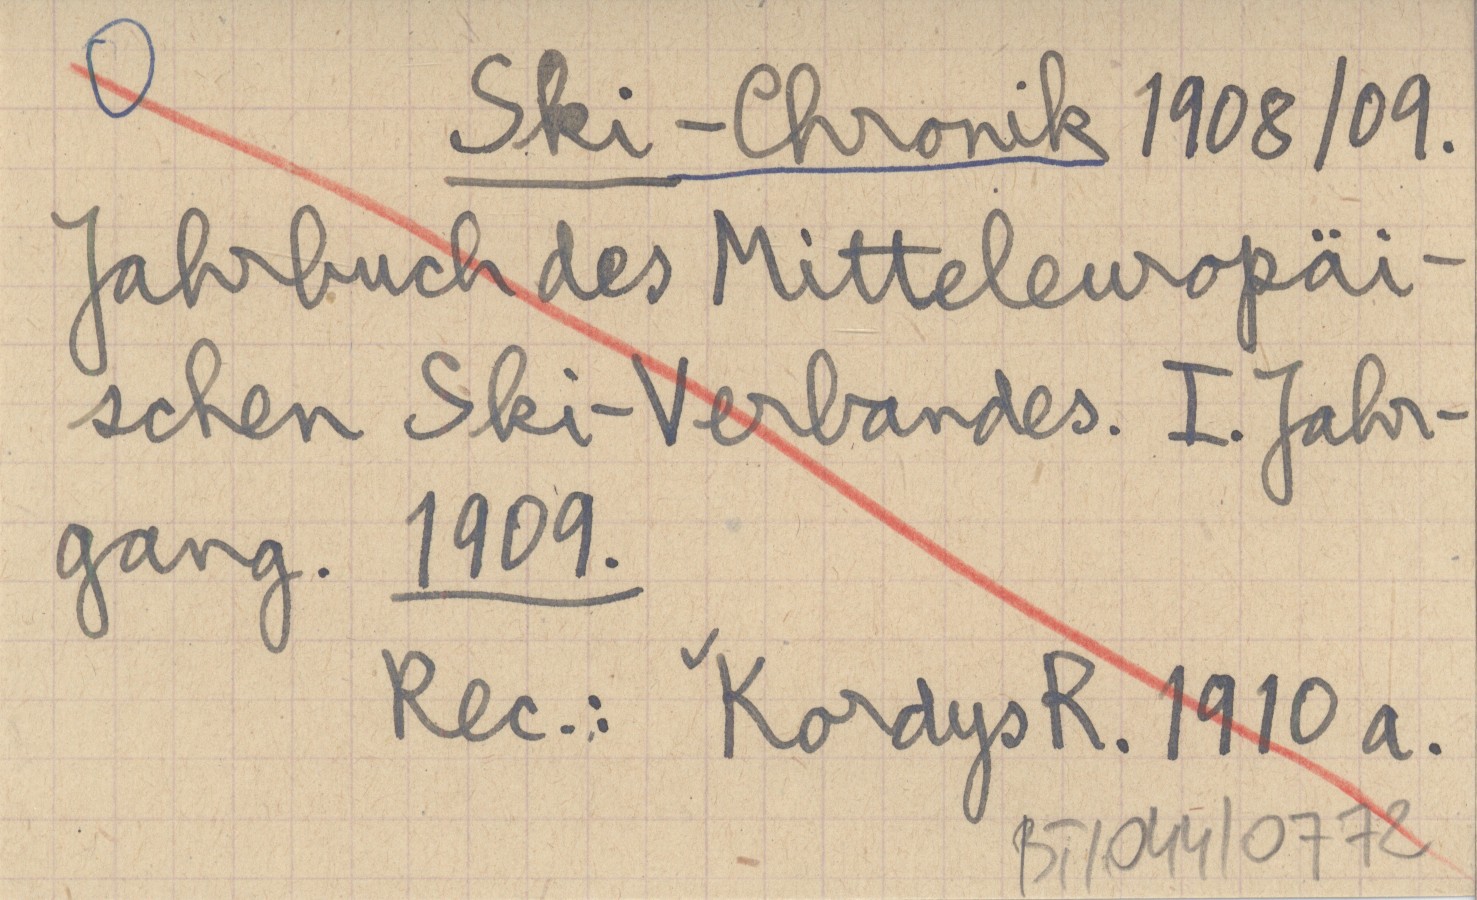 Ski-Chronik 1908/09.
Jahrbuch des Mitteleuropäi-
schen Ski-Verbandes. I. Jahr-
gang. 1909.
Rec.: Kordys R. 1910 a.
BT/044/0772